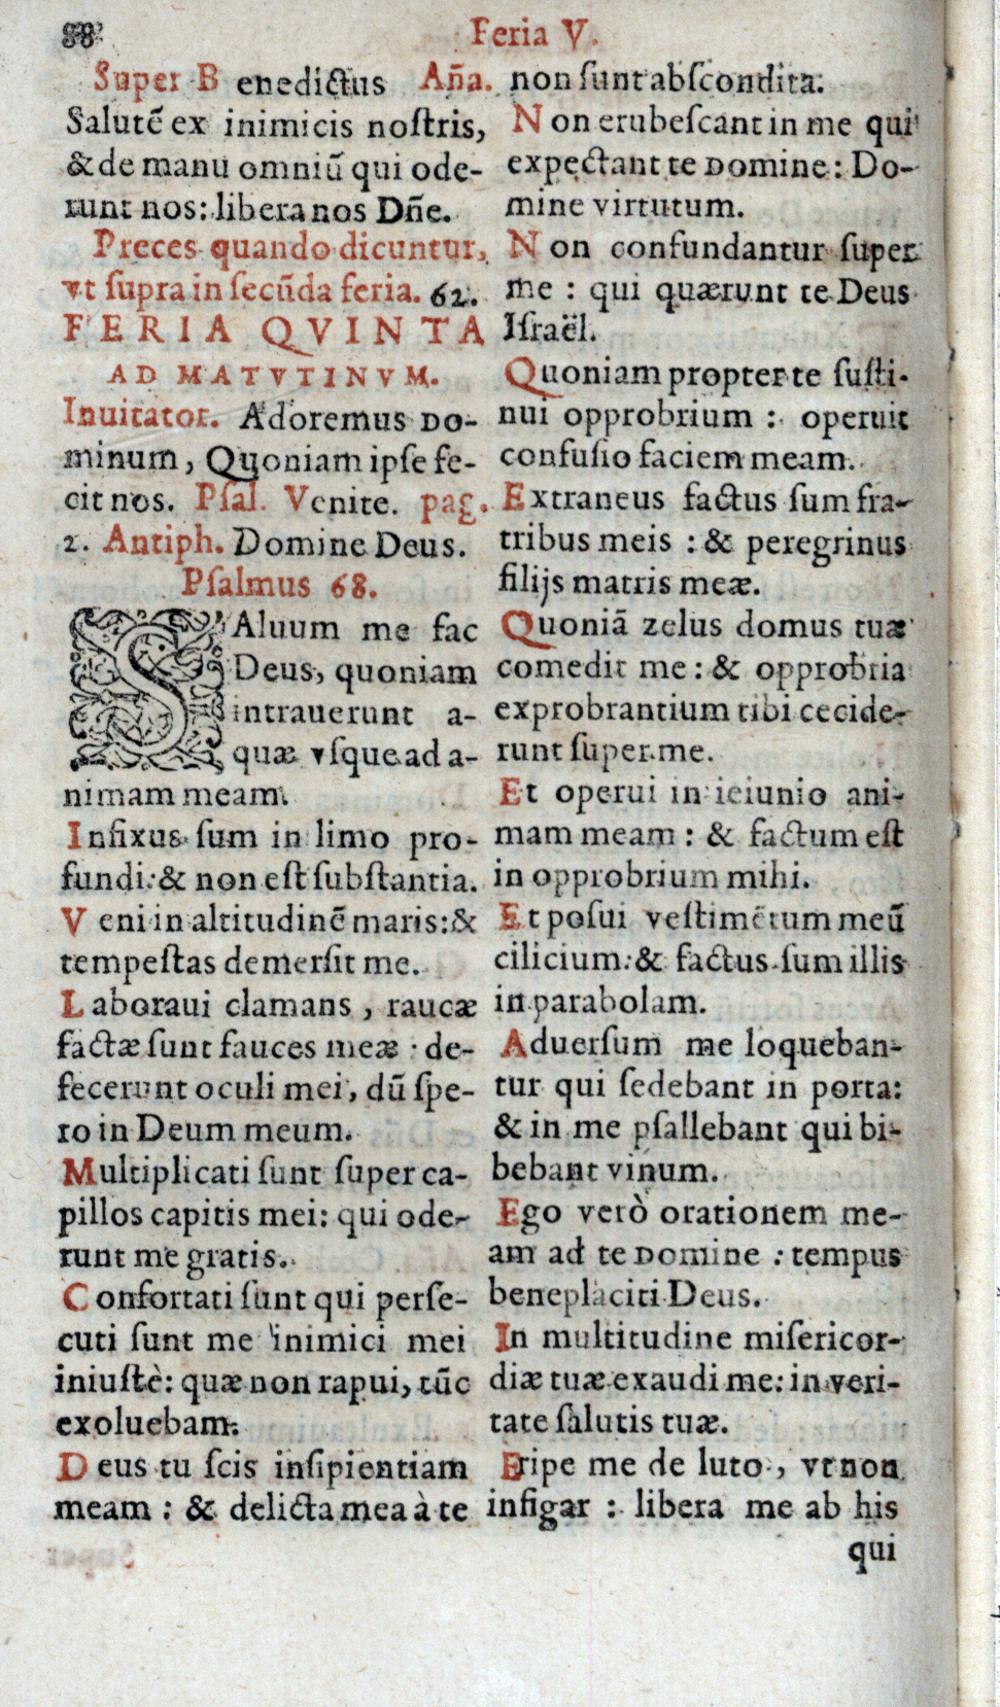 88
Feria V.
Super Benedictus Aña.
Salutẽ ex inimicis noſtris,
& de manu omniũ qui ode-
runt nos: libera nos Dñe.
Preces quando dicuntur,
vt ſupra in ſecũda feria. 62.
FERIA QVINTA
AD MATVTINVM.
Inuitator. Adoremus Do-
minum, Quoniam ipſe fe-
cit nos. Pſal. Venite. pag.
2. Antiph. Domine Deus.
Pſalmus 68.
SAluum me fac
Deus, quoniam
intrauerunt a-
quæ vſque ad a-
nimam meam.
Infixus ſum in limo pro-
fundi: & non eſt ſubſtantia.
Veni in altitudinẽ maris: &
tempeſtas demerſit me.
Laboraui clamans, raucæ
factæ ſunt fauces meæ: de-
fecerunt oculi mei, dũ ſpe-
ro in Deum meum.
Multiplicati ſunt ſuper ca-
pillos capitis mei: qui ode-
runt me gratis.
Confortati ſunt qui perſe-
cuti ſunt me inimici mei
iniuſtè: quæ non rapui, tũc
exoluebam.
Deus tu ſcis inſipientiam
meam: & delicta mea à te
non ſunt abſcondita.
Non erubeſcant in me qui
expectant te Domine: Do-
mine virtutum.
Non confundantur ſuper
me: qui quærunt te Deus
Iſraël.
Quoniam propter te ſuſti-
nui opprobrium: operuit
confuſio faciem meam.
Extraneus factus ſum fra-
tribus meis: & peregrinus
filijs matris meæ.
Quoniã zelus domus tuæ
comedit me: & opprobria
exprobrantium tibi cecide-
runt ſuper me.
Et operui in ieiunio ani-
mam meam: & factum eſt
in opprobrium mihi.
Et poſui veſtimẽtum meũ
cilicium: & factus ſum illis
in parabolam.
Aduerſum me loqueban-
tur qui ſedebant in porta:
& in me pſallebant qui bi-
bebant vinum.
Ego verò orationem me-
am ad te Domine: tempus
beneplaciti Deus.
In multitudine miſericor-
diæ tuæ exaudi me: in veri-
tate ſalutis tuæ.
Eripe me de luto, vt non
infigar: libera me ab his
qui